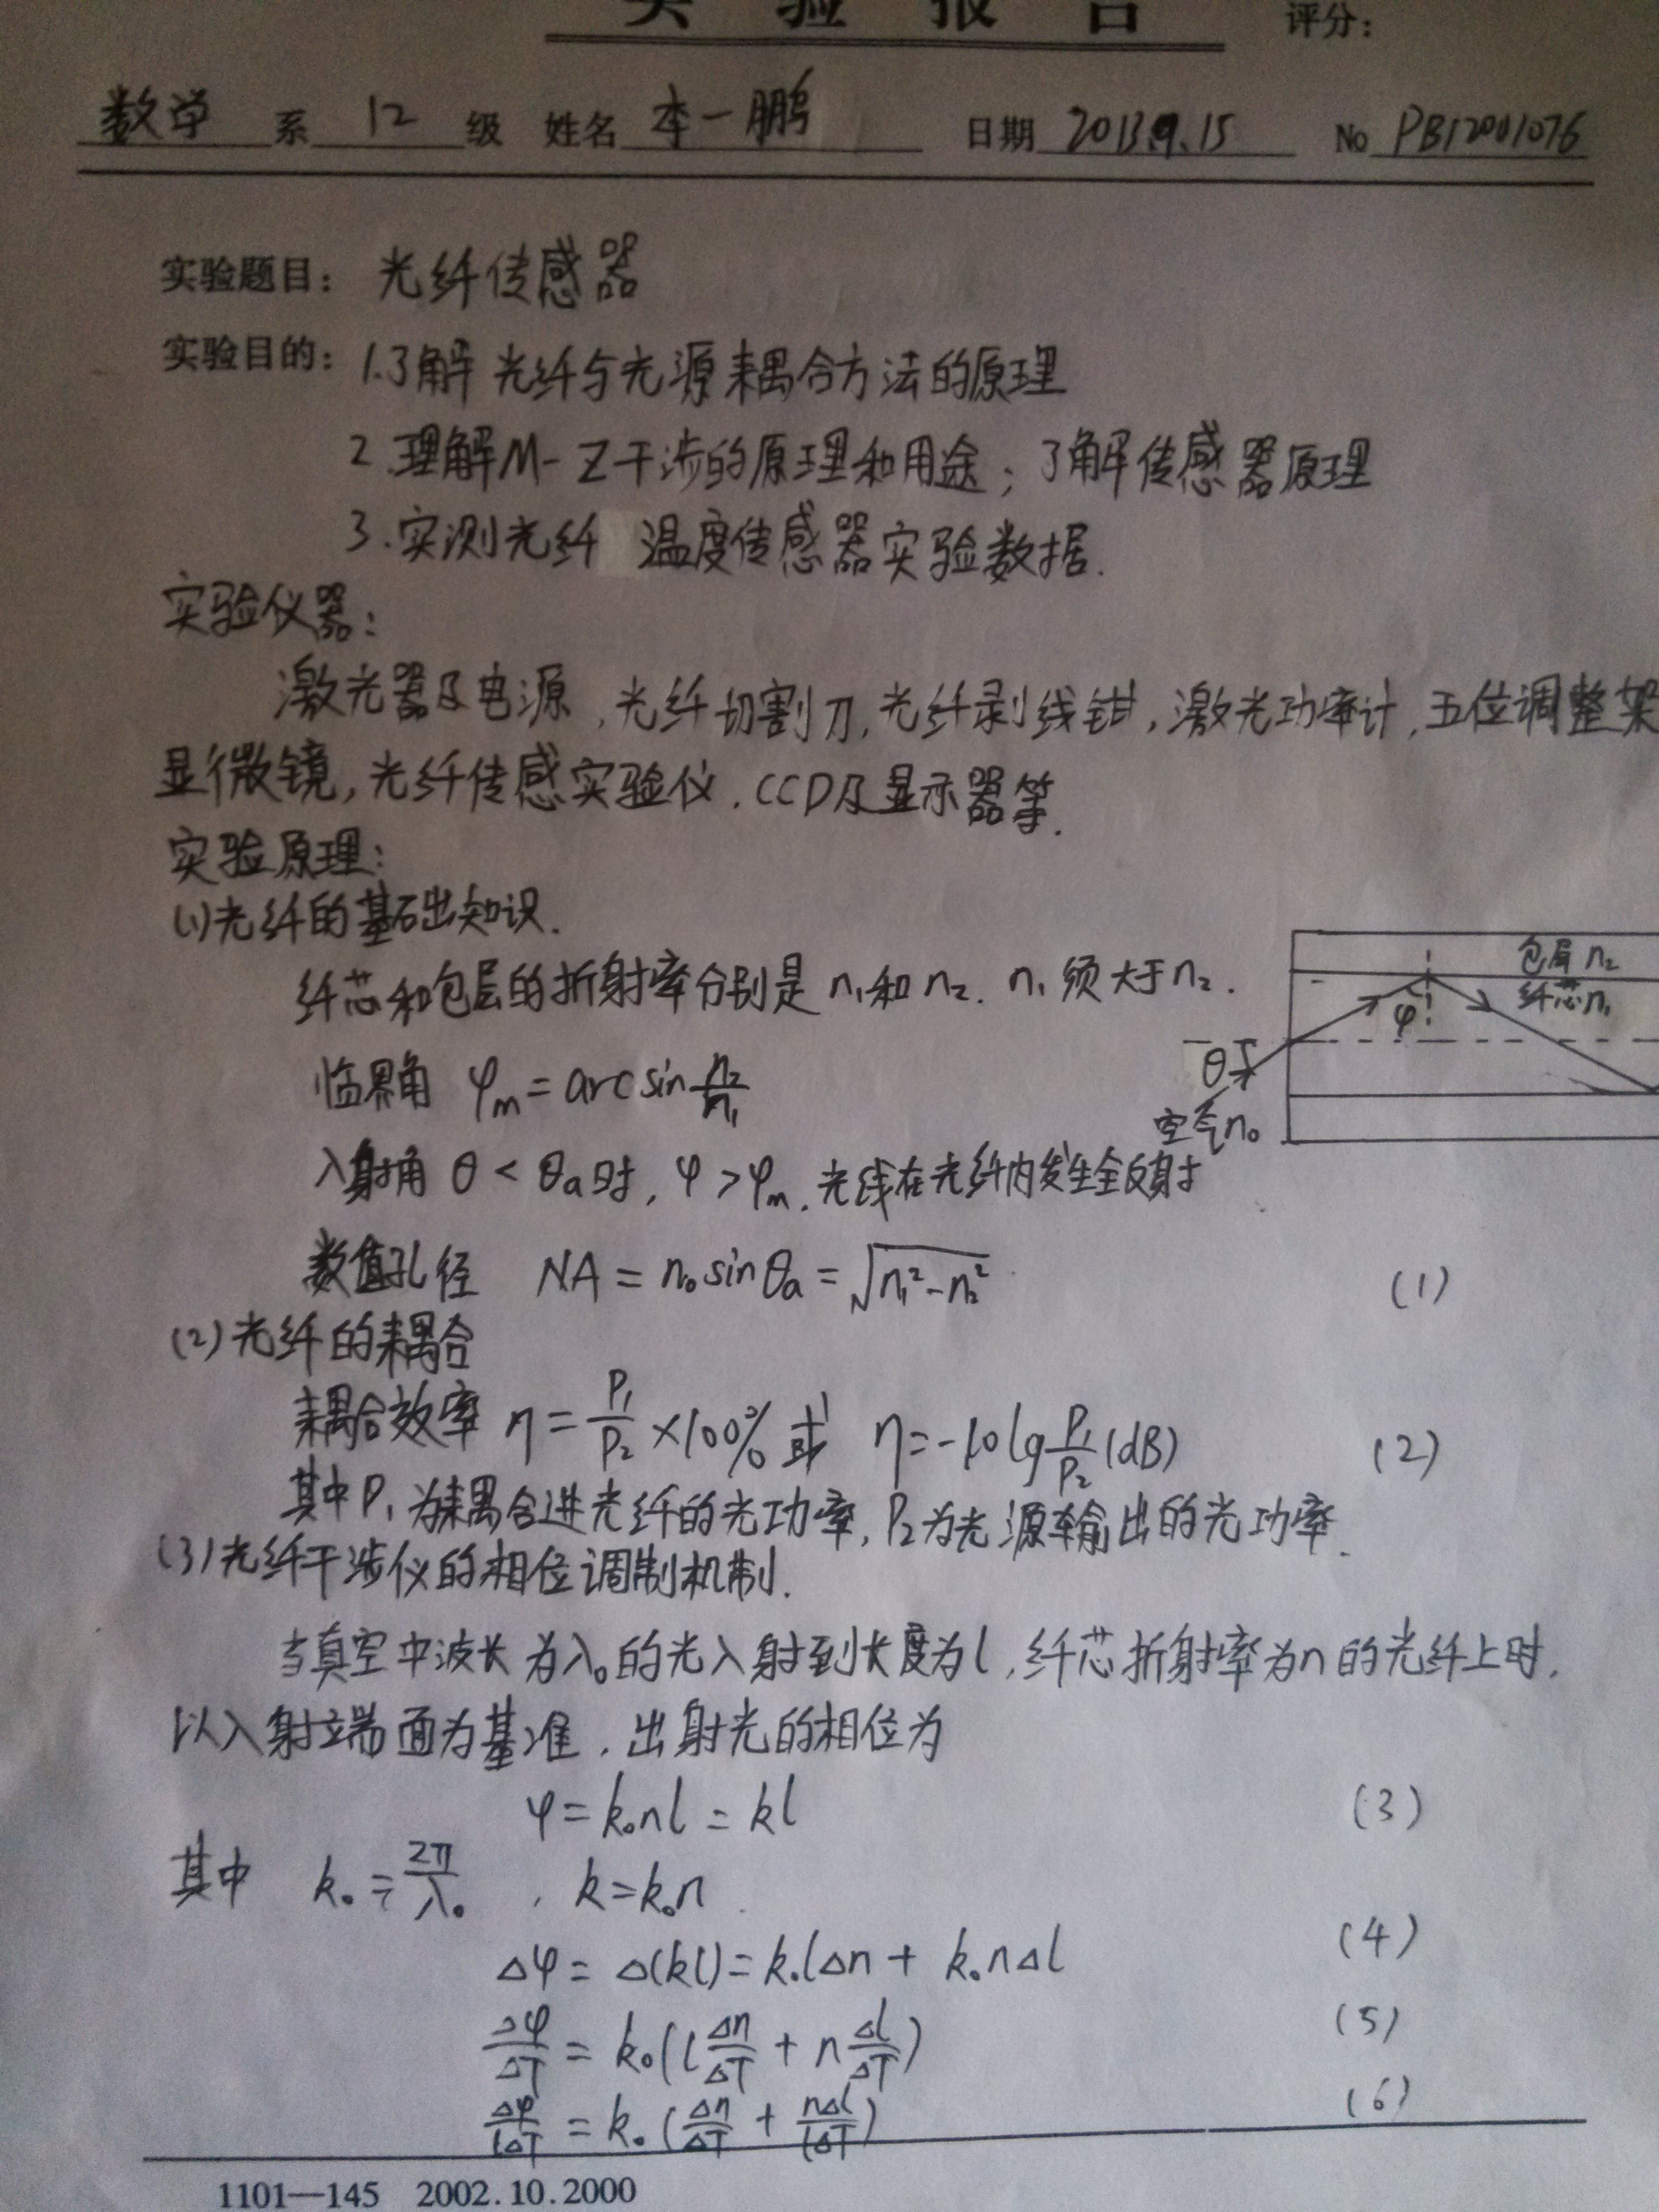 实验报告
评分:
数学 系 12 级 姓名 李一鹏 日期 2013.9.15 No PB12001076
实验题目: 光纤传感器
实验目的: 1.了解光纤与光源耦合方法的原理
2.理解M-Z干涉的原理和用途;了解传感器原理
3.实测光纤 温度传感器实验数据.
实验仪器:
激光器及电源,光纤切割刀,光纤剥线钳,激光功率计,五位调整架
显微镜,光纤传感实验仪,CCD及显示器等.
实验原理:
(1)光纤的基础知识.
纤芯和包层的折射率分别是n₁和n₂. n₁须大于n₂.
包层n₂
纤芯n₁
φ
θ
空气n₀
临界角 φₘ = arcsin n₂/n₁
入射角 θ < θₐ时, φ > φₘ, 光线在光纤内发生全反射
数值孔径 NA = n₀ sinθₐ = √(n₁²-n₂²) (1)
(2)光纤的耦合
耦合效率 η = P₁/P₂ ×100% 或 η = -10lg P₁/P₂ (dB) (2)
其中P₁为耦合进光纤的光功率, P₂为光源输出的光功率.
(3)光纤干涉仪的相位调制机制.
当真空中波长为λ₀的光入射到长度为l,纤芯折射率为n的光纤上时,
以入射端面为基准,出射光的相位为
φ = k₀nl = kl (3)
其中 k₀ = 2π/λ₀ , k = k₀n.
Δφ = Δ(kl) = k₀lΔn + k₀nΔl (4)
Δφ/ΔT = k₀(l Δn/ΔT + n Δl/ΔT) (5)
Δφ/lΔT = k₀(Δn/ΔT + nΔl/lΔT) (6)
1101—145 2002.10.2000